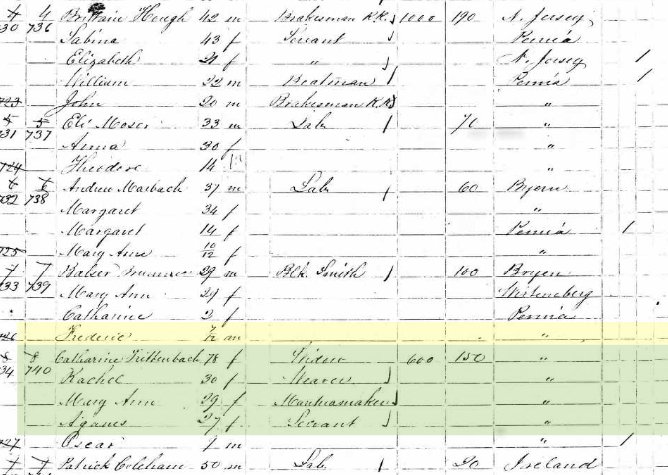 4 4 Brittain Heugh 42 m Brakesman R.R. 1000 190 N. Jersey
730 736 Sabina 43 f Servant Pennia
Elizabeth 21 f " N. Jersey 1
William 22 m Boatman Pennia 1
723 John 20 m Brakesman R.R. "
5 5 Eli Moser 33 m Lab 70 "
731 737 Anna 30 f "
724 Theodore 14 "
6 6 Andrew Marbach 37 m Lab 60 Byern
732 738 Margaret 34 f "
Margaret 14 f Pennia 1
725 Mary Ann 10/12 f "
7 7 Balser 29 m Blk Smith 100 Bryen
733 739 Mary Ann 29 f Wirtemberg
Catharine 2 f Pennia
726 Frederic m "
8 8 Catharine Trittenbach 78 f Widow 600 150 "
734 740 Rachel 30 f Weaver "
Mary Ann 29 f Mantuamaker "
Aganes 27 f Servant "
727 Oscar 7 m " 1
Patrick Coleham 50 m Lab 20 Ireland